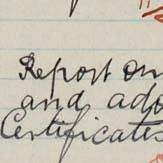 Report on
and ado
Certificates